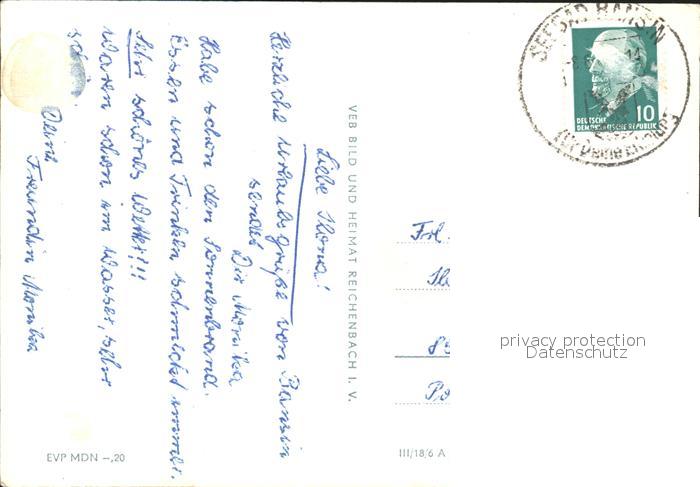 Liebe Ilona!
Herzliche Urlaubsgrüße von Bansin
sendet
Dir Monika
Habe schon den Sonnenbrand.
Essen und Trinken schmickt immer.
Sehr schönes Wetter!!!
Waren schon im Wasser, sehr
schön.
Deine
Freundin Monika
VEB BILD UND HEIMAT REICHENBACH I. V.
EVP MDN –,20
III/18/6 A
Frl.
SEEBAD BANSIN
10
DEUTSCHE
DEMOKRATISCHE REPUBLIK
privacy protection
Datenschutz